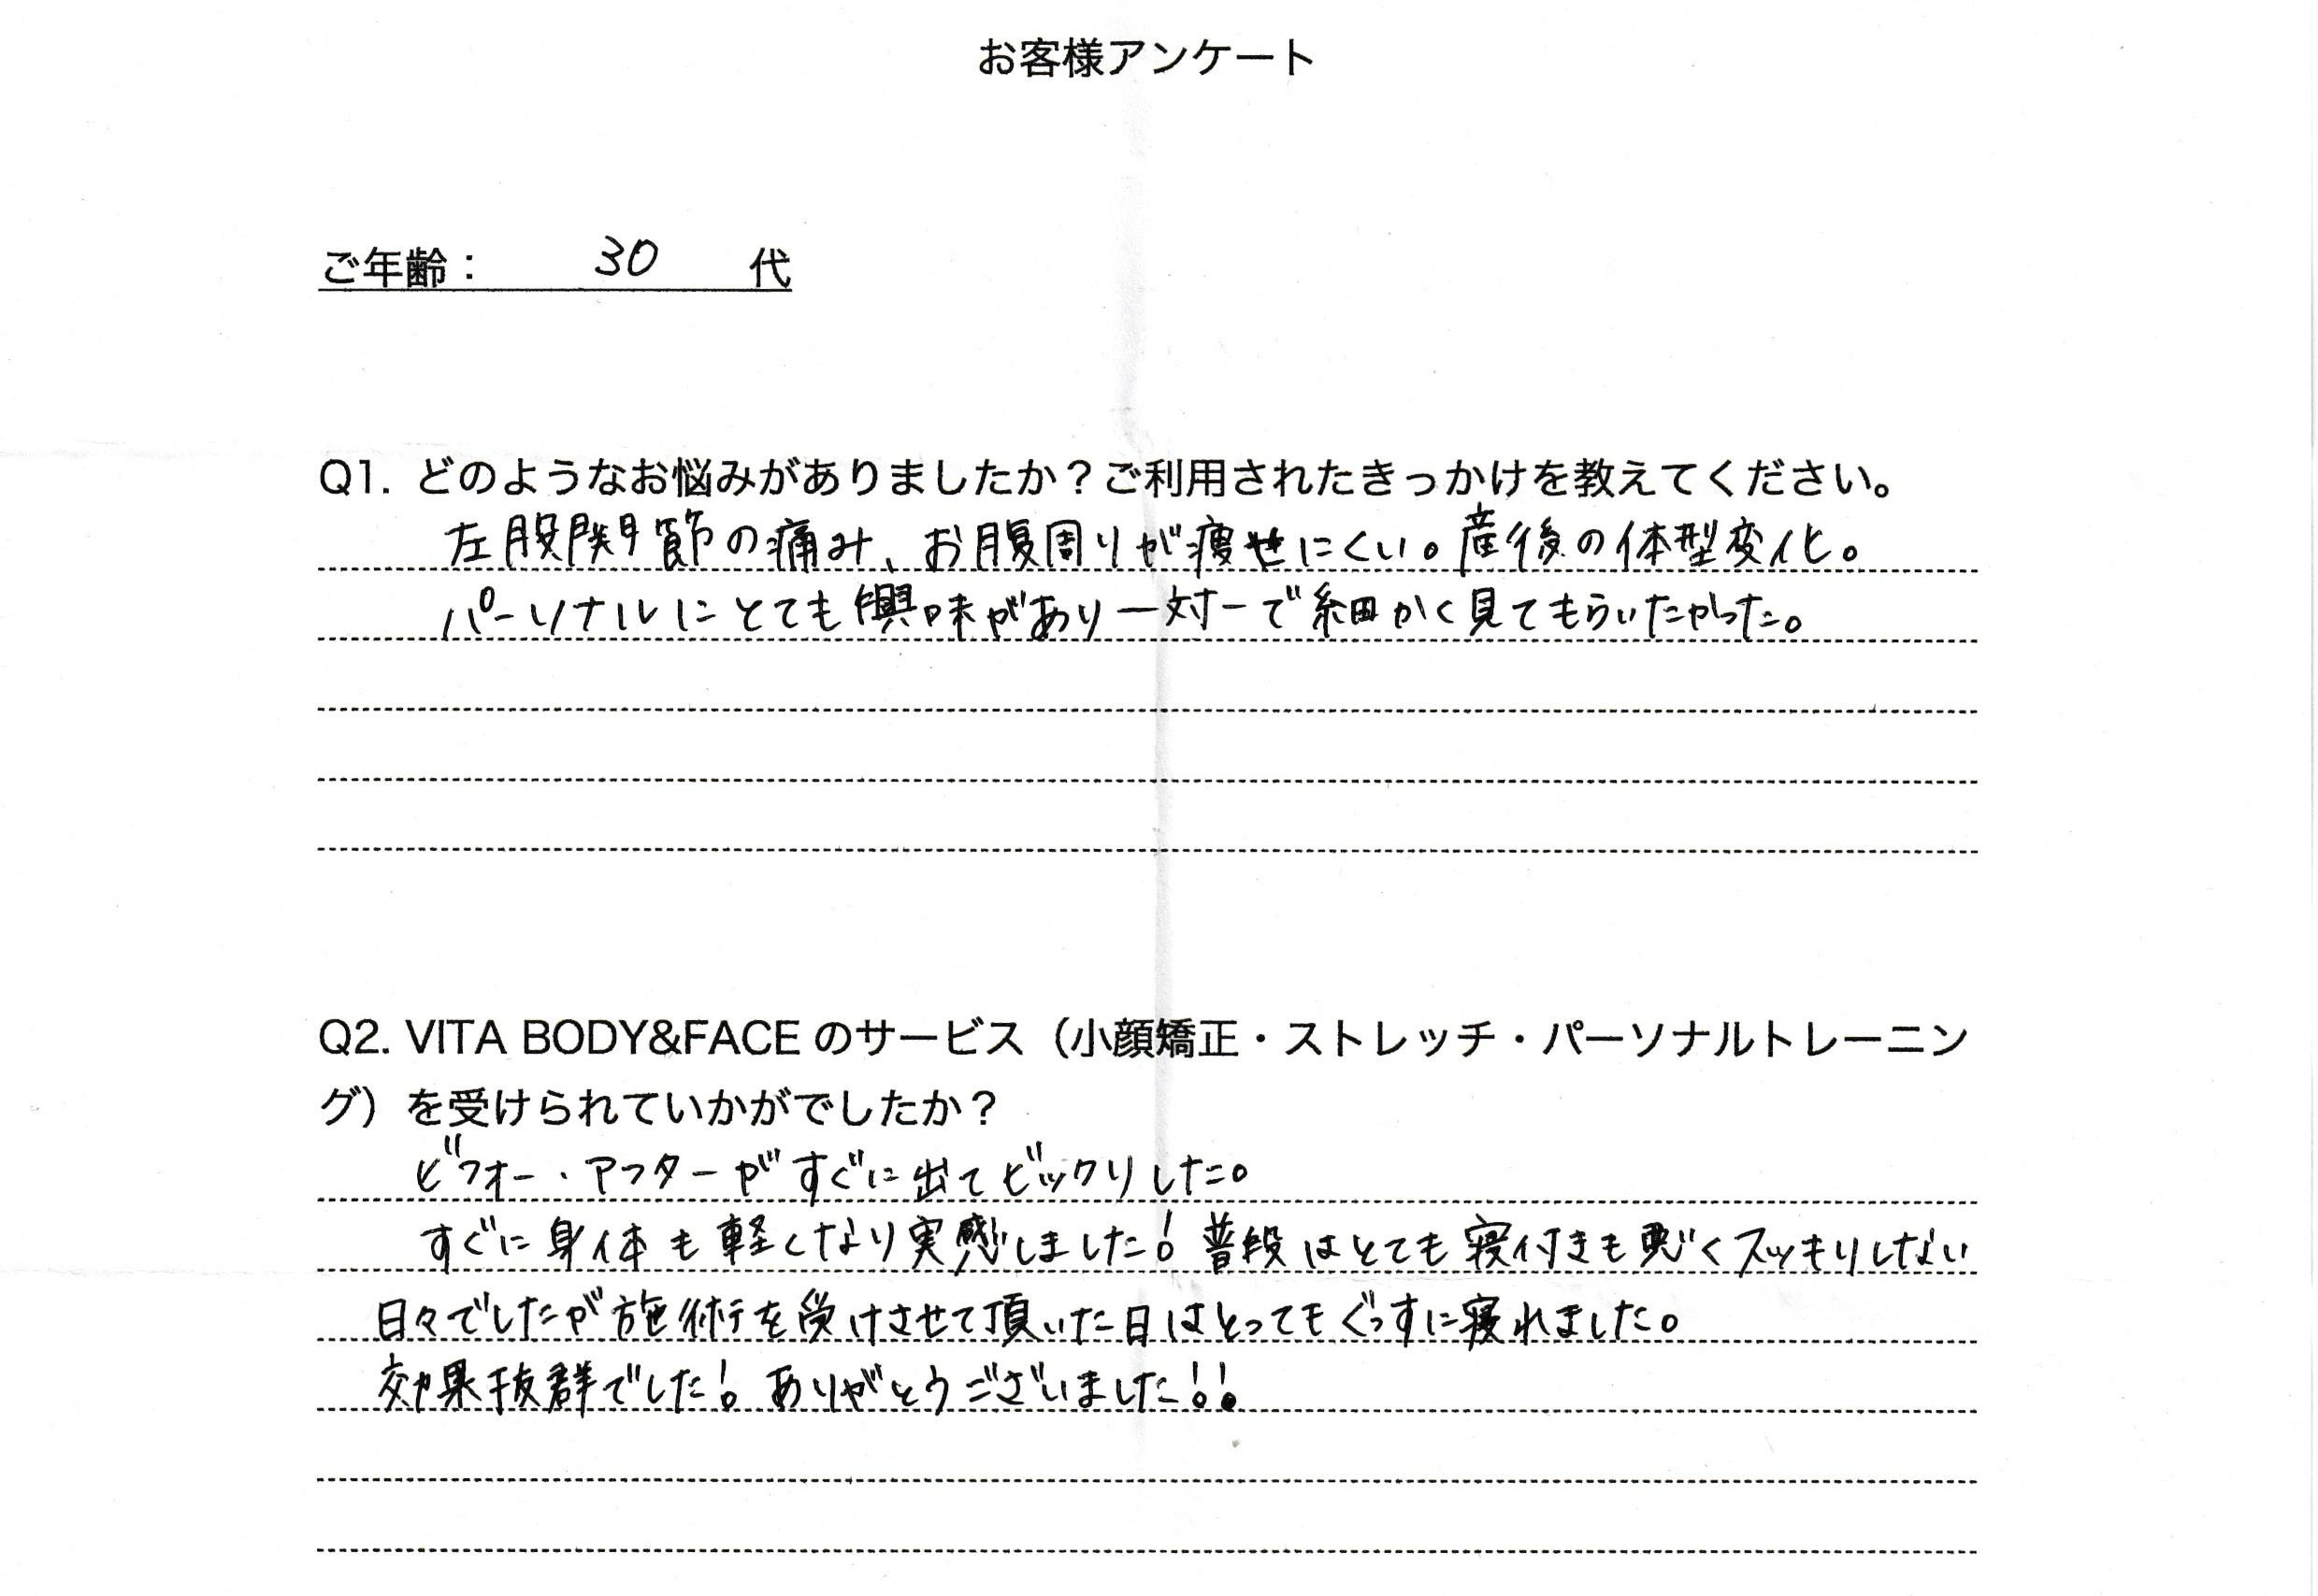 お客様アンケート
ご年齢： 30 代
Q1. どのようなお悩みがありましたか？ご利用されたきっかけを教えてください。
左股関節の痛み、お腹周りが痩せにくい。産後の体型変化。
パーソナルにとても興味があり一対一で細かく見てもらいたかった。
Q2. VITA BODY&FACE のサービス（小顔矯正・ストレッチ・パーソナルトレーニン
グ）を受けられていかがでしたか？
ビフォー・アフターがすぐに出てビックリした。
すぐに身体も軽くなり実感しました！普段はとても寝付きも悪くスッキりしない
日々でしたが施術を受けさせて頂いた日はとってもぐっすに寝れました。
効果抜群でした！ありがとうございました！！